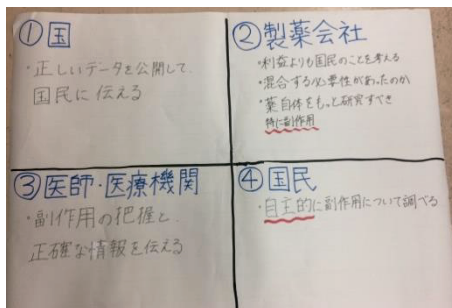 ①国
・正しいデータを公開して、
国民に伝える
②製薬会社
・利益よりも国民のことを考える
・混合する必要性があったのか
・薬自体をもっと研究すべき
特に副作用
③医師・医療機関
・副作用の把握と、
正確な情報を伝える
④国民
・自主的に副作用について調べる